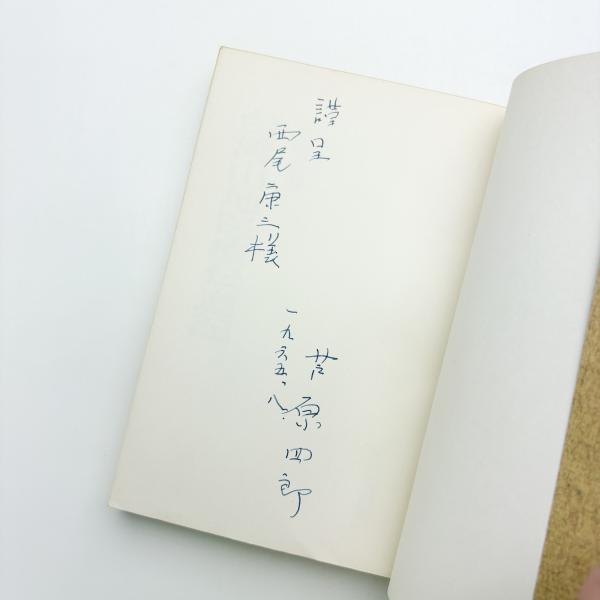 謹呈
西尾康三様
芦原四郎
一九六五、八、